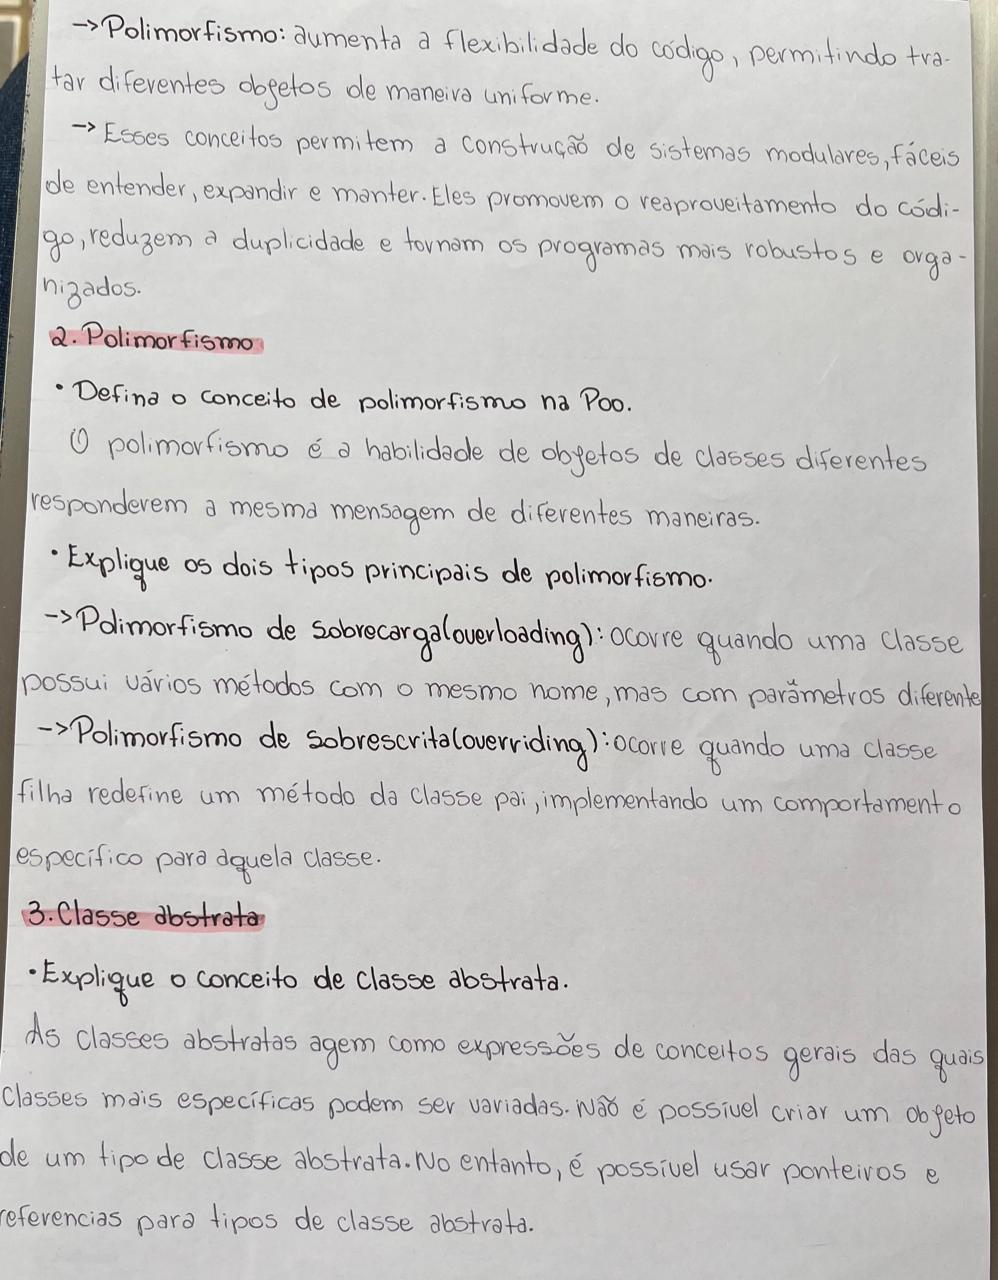 -> Polimorfismo: aumenta a flexibilidade do código, permitindo tra-
tar diferentes objetos de maneira uniforme.
-> Esses conceitos permitem a construção de sistemas modulares, fáceis
de entender, expandir e manter. Eles promovem o reaproveitamento do códi-
go, reduzem a duplicidade e tornam os programas mais robustos e orga-
nizados.
2. Polimorfismo
• Defina o conceito de polimorfismo na Poo.
O polimorfismo é a habilidade de objetos de classes diferentes
responderem a mesma mensagem de diferentes maneiras.
• Explique os dois tipos principais de polimorfismo.
-> Polimorfismo de sobrecarga (overloading): ocorre quando uma classe
possui vários métodos com o mesmo nome, mas com parâmetros diferente
-> Polimorfismo de sobrescrita (overriding): ocorre quando uma classe
filha redefine um método da classe pai, implementando um comportamento
específico para aquela classe.
3. Classe abstrata
• Explique o conceito de classe abstrata.
As classes abstratas agem como expressões de conceitos gerais das quais
classes mais específicas podem ser variadas. Não é possível criar um objeto
de um tipo de classe abstrata. No entanto, é possível usar ponteiros e
referencias para tipos de classe abstrata.